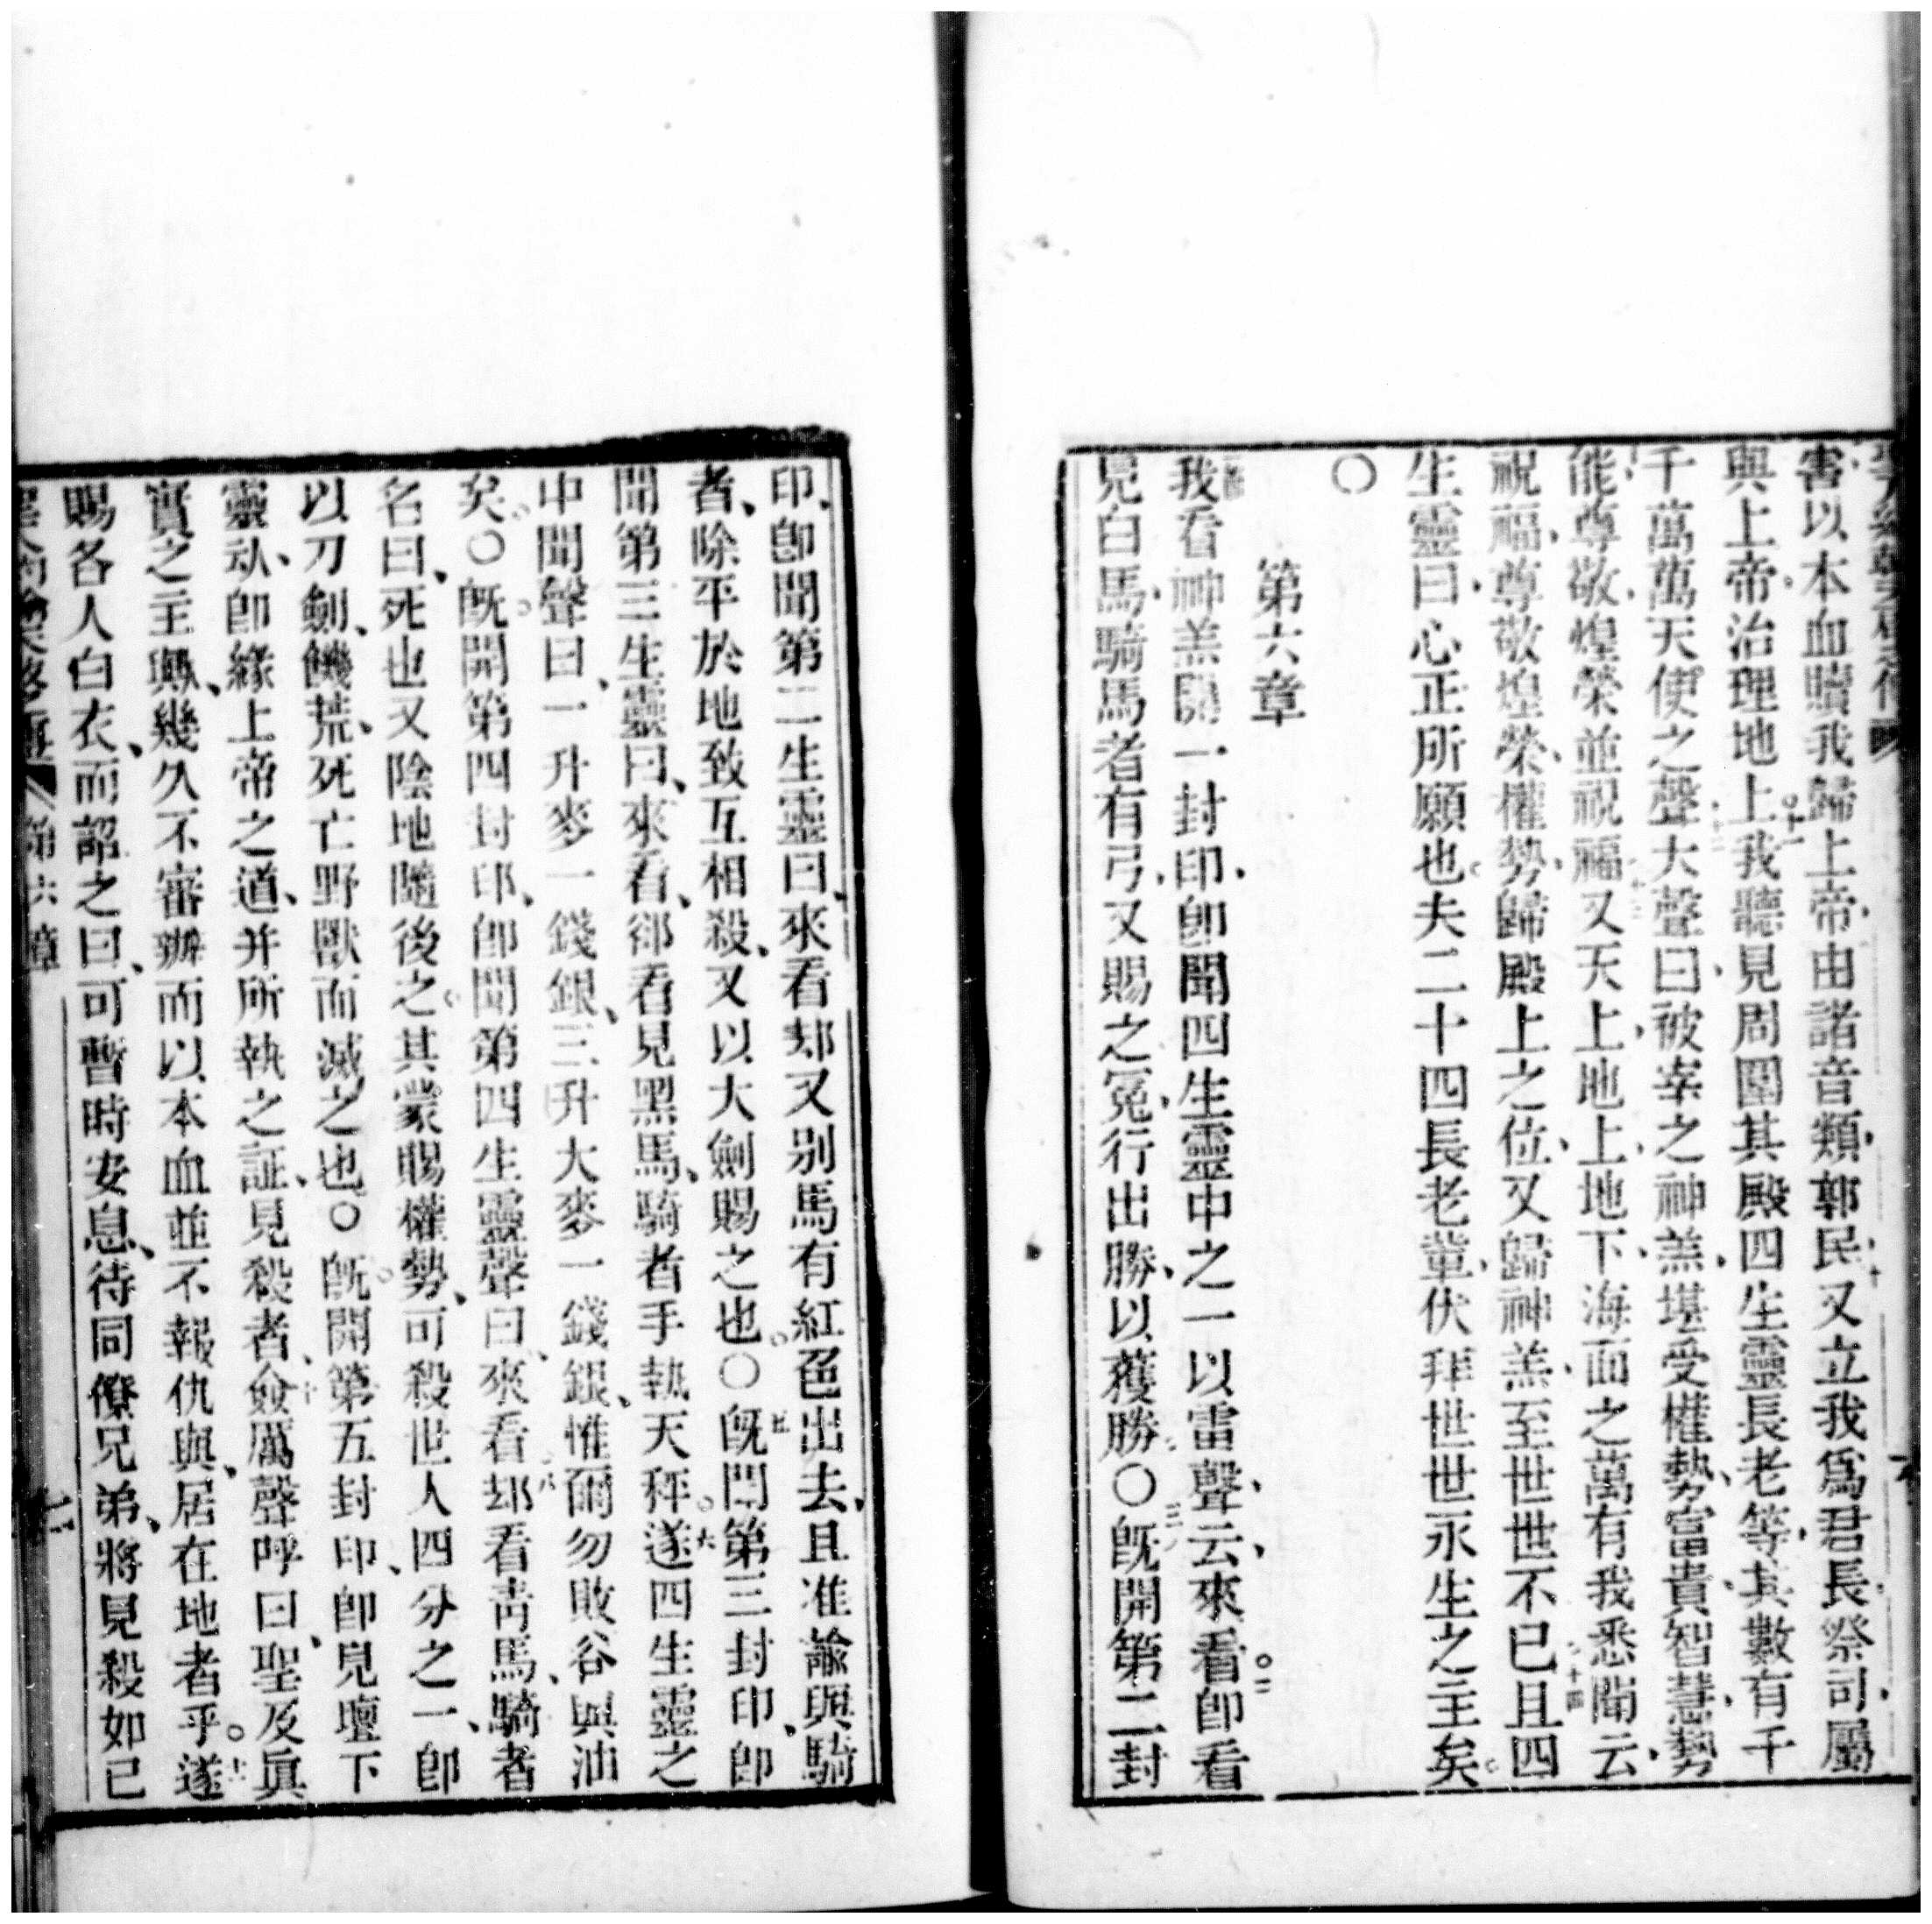 害以本血贖我歸上帝、由諸音類、郭民、又立我爲君長、祭司、屬
與上帝。治理地上。我聽見周圍其殿四生靈長老等、其數有千
千萬萬天使之聲、大聲曰、被宰之神羔、堪受權勢、富貴、智慧、勢
能、尊敬、煌榮、並祝福。又天上、地上、地下、海面之萬有、我悉聞云、
祝福、尊敬、煌榮、權勢、歸殿上之位、又歸神羔、至世世不已。且四
生靈曰、心正所願也。夫二十四長老輩、伏拜世世永生之主矣。
〇
第六章
我看神羔開一封印、卽聞四生靈中之一以雷聲、云、來看。二卽看
見白馬、騎馬者有弓、又賜之冕、行出勝、以獲勝。〇三旣開第二封
印、卽聞第二生靈曰、來看。却又別馬有紅色出去、且准諭與騎
者、除平於地、致互相殺、又以大劍賜之也。〇旣開第三封印、卽
聞第三生靈曰、來看、却看見黑馬、騎者手執天秤。六遂四生靈之
中聞聲曰、一升麥一錢銀、三升大麥一錢銀、惟爾勿敗谷與油
矣。〇旣開第四封印、卽聞第四生靈聲曰、來看。八却看靑馬、騎者
名曰、死也、又陰地隨後之。其蒙賜權勢、可殺世人四分之一、卽
以刀劍、饑荒、死亡野獸而滅之也。〇旣開第五封印、卽見壇下
靈㒲、卽緣上帝之道、并所執之証、見殺者、十僉厲聲呼曰、聖及眞
實之主歟、幾久不審辦而以本血並不報仇與、居在地者乎。十一遂
賜各人白衣、而詔之曰、可暫時安息、待同僚兄弟、將見殺如已
第六章
七